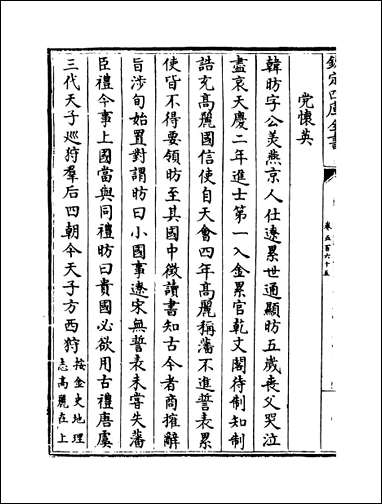 欽定四庫全書
卷五百六十五
党懷英
韓昉字公美燕京人仕遼累世通顯昉五歲喪父哭泣
盡哀天慶二年進士第一入金累官乾文閣待制知制
誥充高麗國信使自天會四年高麗稱藩不進誓表累
使皆不得要領昉至其國中徴讀書知古今者商搉辭
旨涉旬始置對謂昉曰小國事遼宋無誓表未嘗失藩
臣禮今事上國當與同禮昉曰貴國必欲用古禮唐虞
三代天子廵狩羣后四朝今天子方西狩
按金史地理
志高麗在上